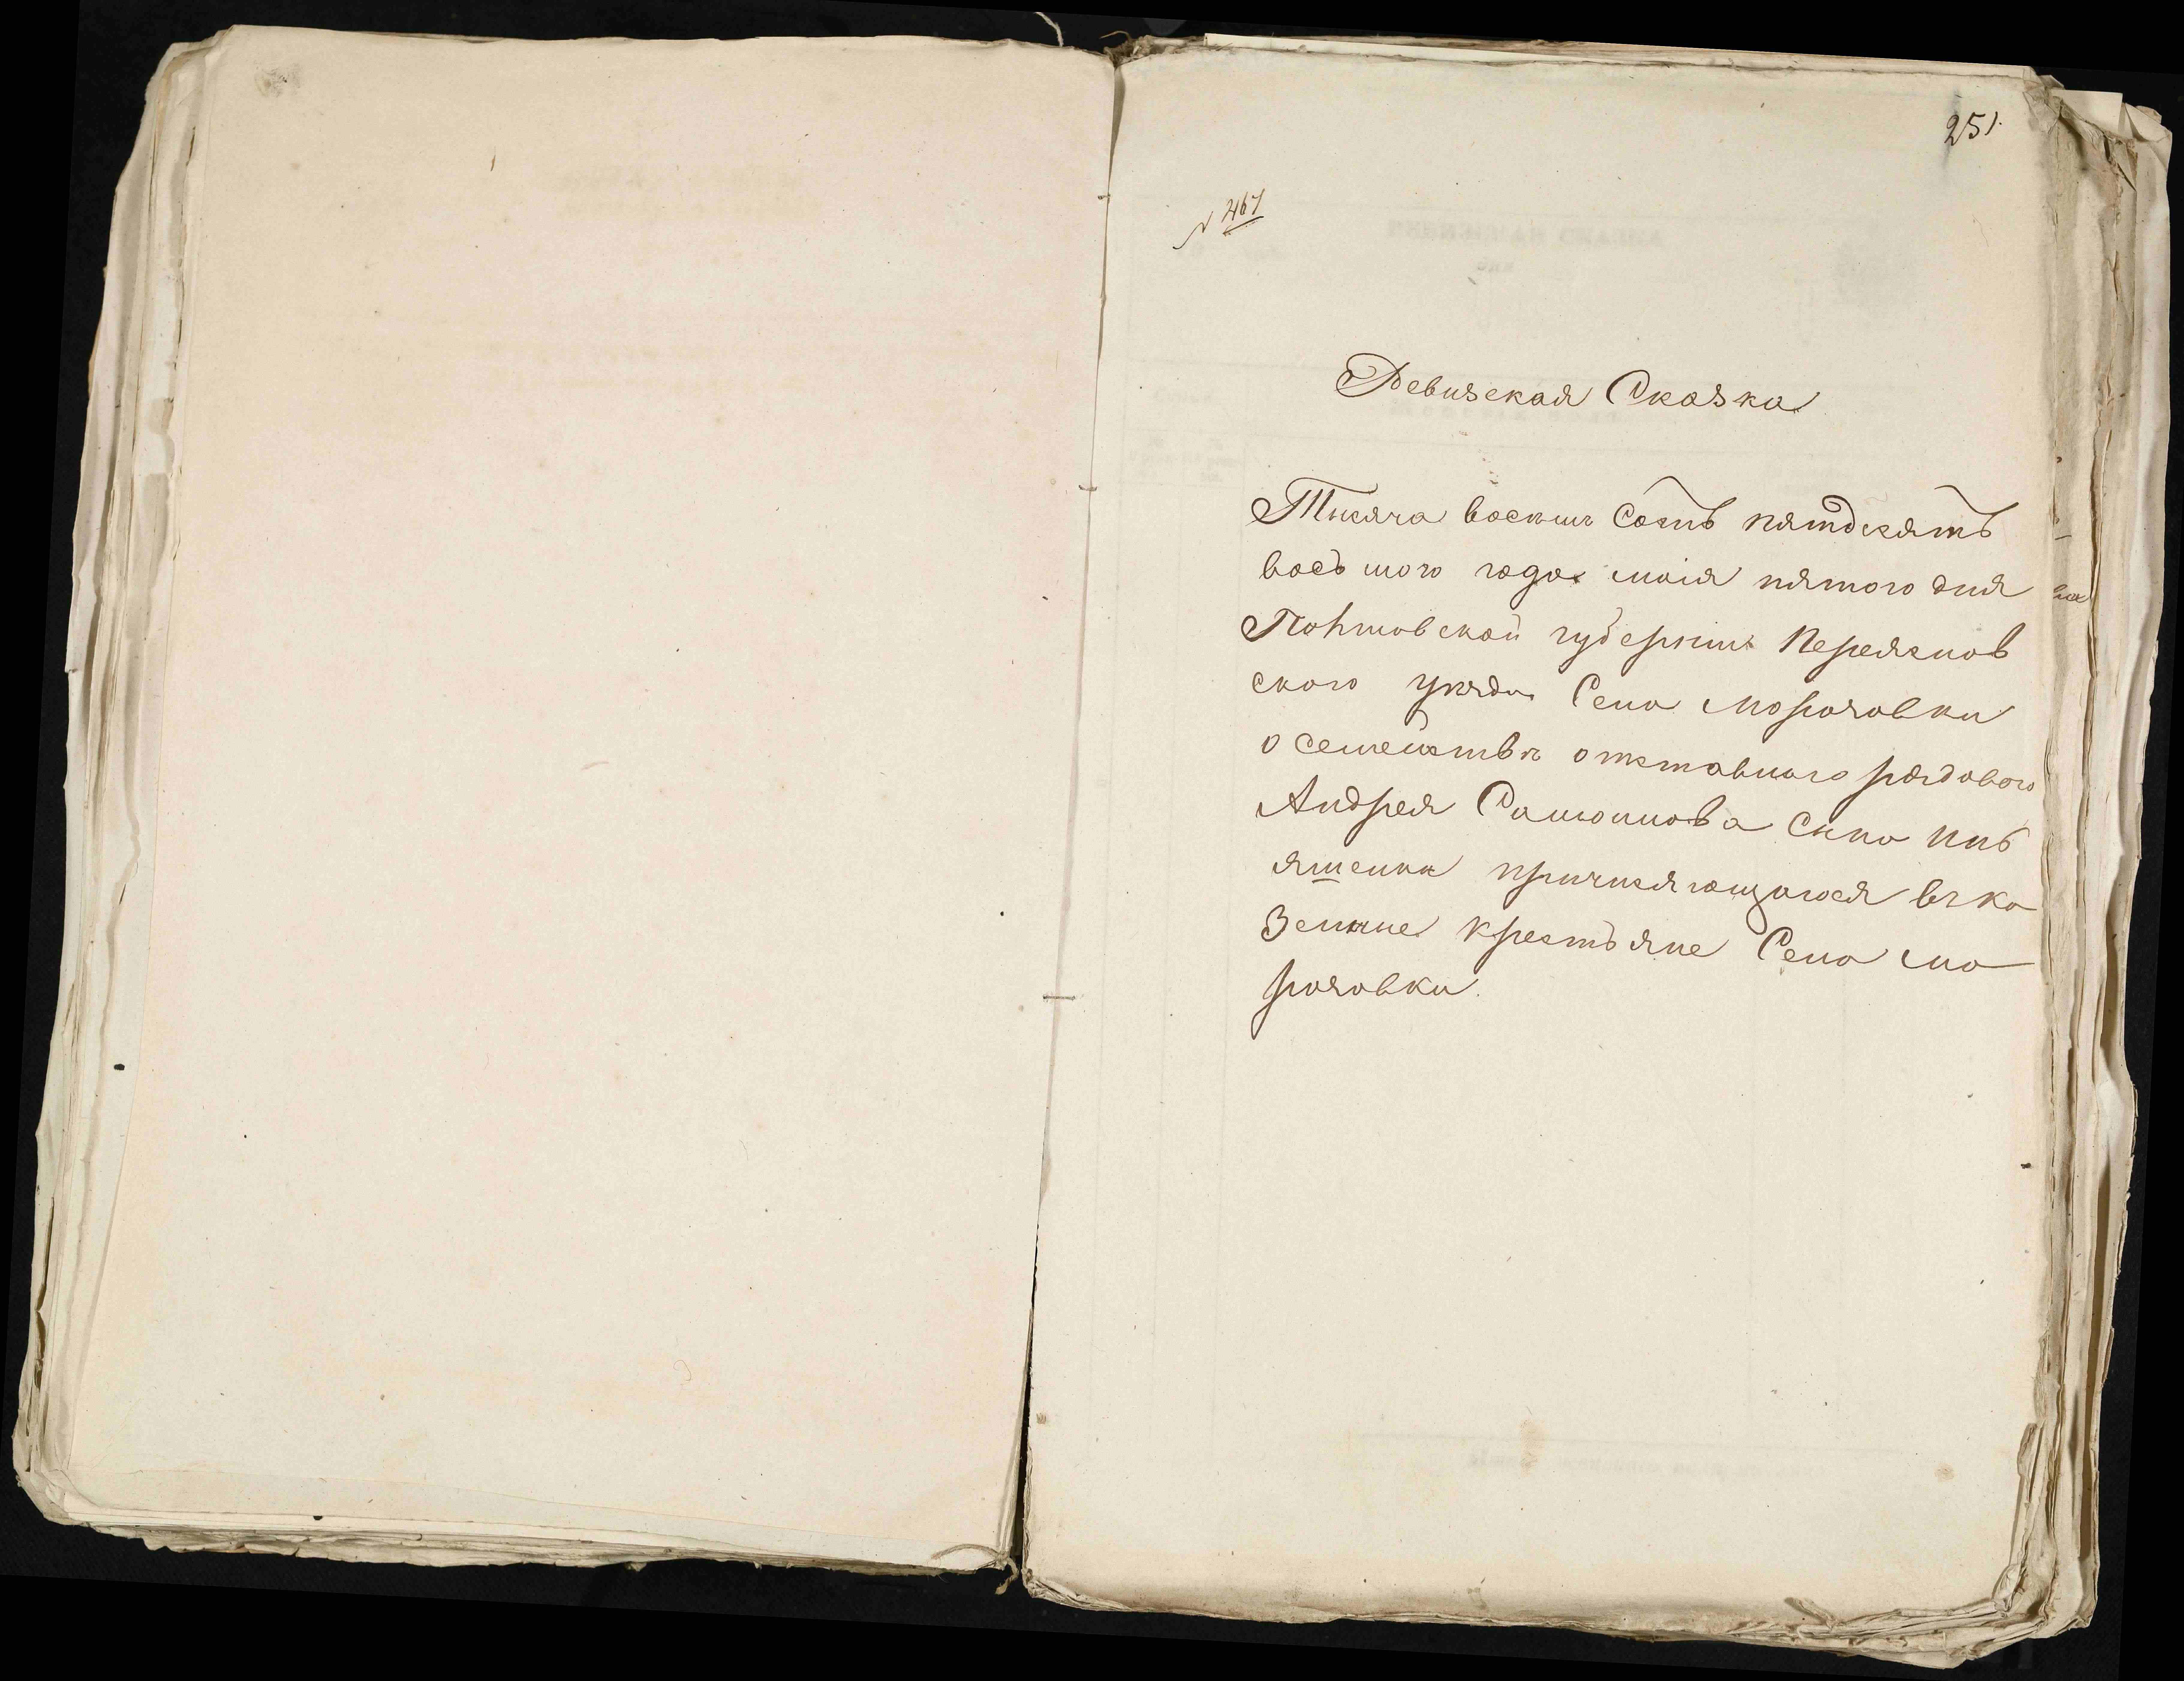 251
N 467
Ревизская Сказка
Тисяча восемь сотъ пятдесятъ
восьмого года мая пятого дня
Полтовской губернии Переяслов
ского уезда Села Морозовки
о семействѣ отставного рядового
Андрея Самойлова Сына
причисляющагося въ ка
зенние крестьяне Села мо
розовки.